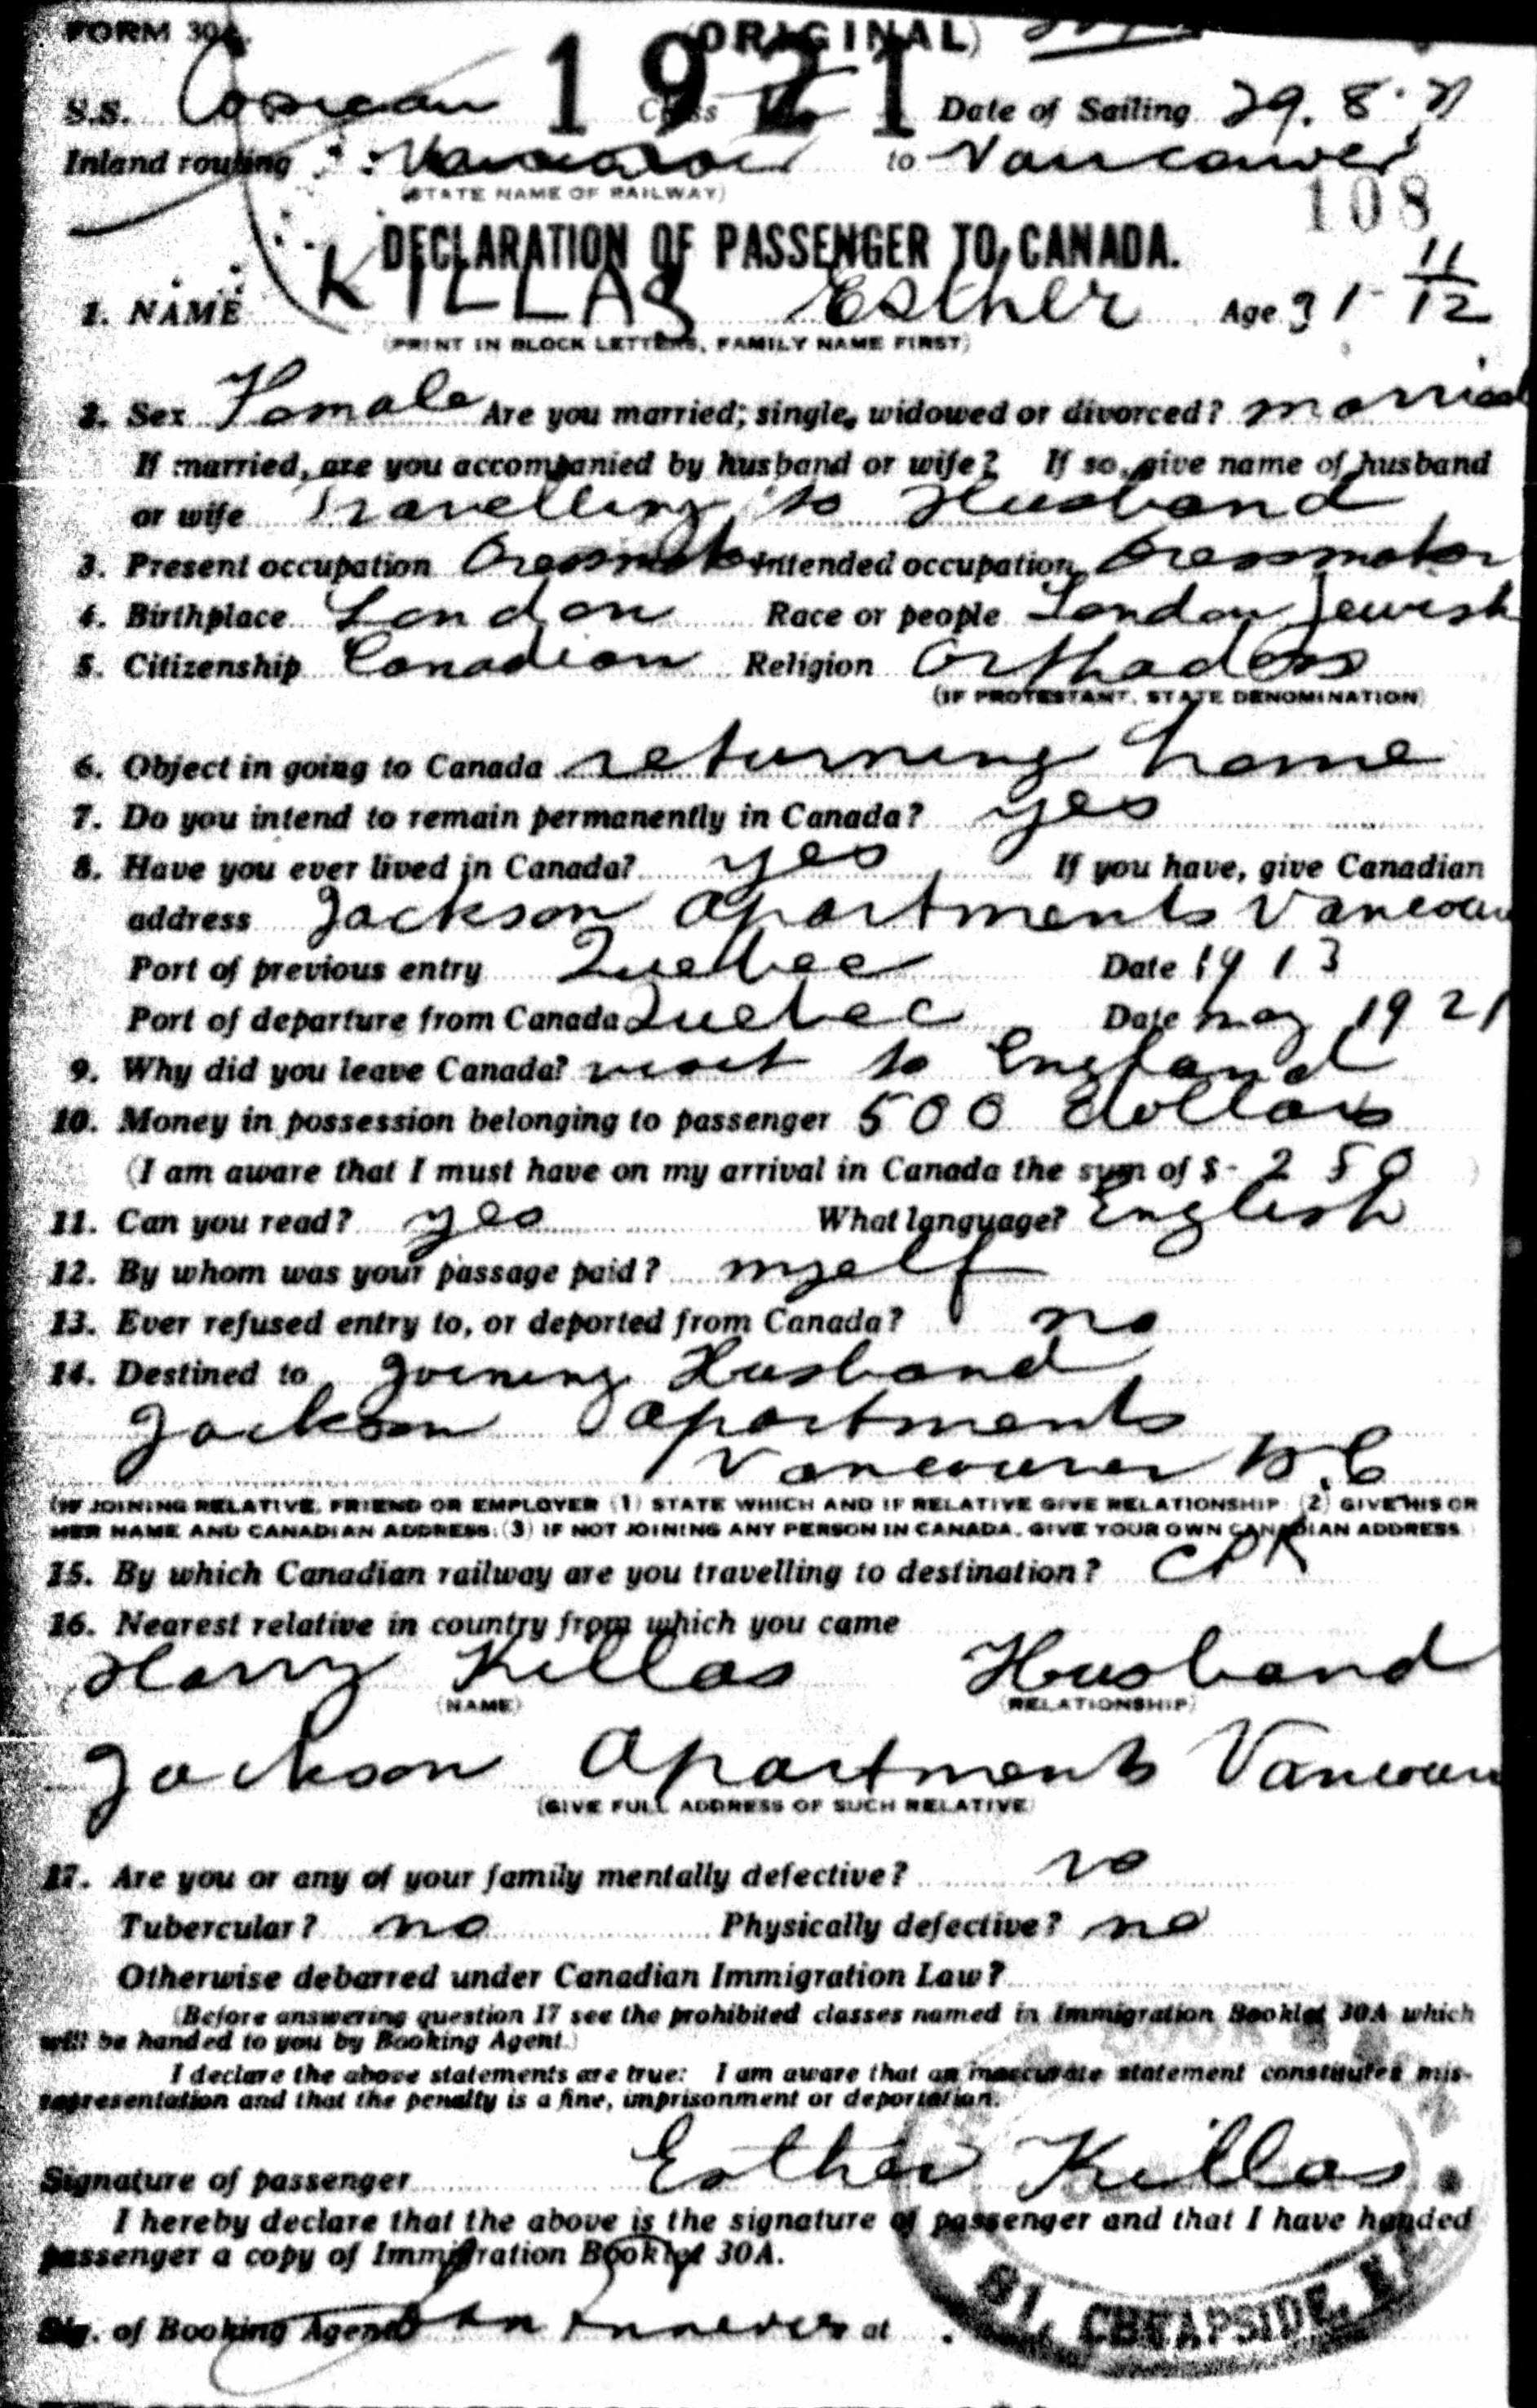 FORM 30A. (ORIGINAL)
1921
S.S. Corsican Class Date of Sailing 29. 8. 21
Inland routing Vancouver to Vancouver
(STATE NAME OF RAILWAY)
108
DECLARATION OF PASSENGER TO CANADA.
1. NAME KILLAS Esther Age 31 11/12
(PRINT IN BLOCK LETTERS, FAMILY NAME FIRST)
2. Sex Female Are you married, single, widowed or divorced? married
If married, are you accompanied by husband or wife? If so, give name of husband
or wife Travelling to Husband
3. Present occupation Dressmaker Intended occupation Dressmaker
4. Birthplace London Race or people London Jewish
5. Citizenship Canadian Religion Orthadox
(IF PROTESTANT, STATE DENOMINATION)
6. Object in going to Canada returning home
7. Do you intend to remain permanently in Canada? yes
8. Have you ever lived in Canada? yes If you have, give Canadian
address Jackson Apartments Vancouv
Port of previous entry Quebec Date 1913
Port of departure from Canada Quebec Date may 1921
9. Why did you leave Canada? visit to England
10. Money in possession belonging to passenger 500 dollars
(I am aware that I must have on my arrival in Canada the sum of $- 250 )
11. Can you read? yes What language? English
12. By whom was your passage paid? myself
13. Ever refused entry to, or deported from Canada? no
14. Destined to Joining Husband
Jackson Apartments
Vancouver B.C
(IF JOINING RELATIVE, FRIEND OR EMPLOYER (1) STATE WHICH AND IF RELATIVE GIVE RELATIONSHIP (2) GIVE HIS OR
HER NAME AND CANADIAN ADDRESS. (3) IF NOT JOINING ANY PERSON IN CANADA, GIVE YOUR OWN CANADIAN ADDRESS
15. By which Canadian railway are you travelling to destination? CPR
16. Nearest relative in country from which you came
Harry Killas Husband
(NAME) (RELATIONSHIP)
Jackson Apartments Vancouv
(GIVE FULL ADDRESS OF SUCH RELATIVE)
17. Are you or any of your family mentally defective? no
Tubercular? no Physically defective? no
Otherwise debarred under Canadian Immigration Law?
(Before answering question 17 see the prohibited classes named in Immigration Booklet 30A which
will be handed to you by Booking Agent.)
I declare the above statements are true: I am aware that an inaccurate statement constitutes mis-
representation and that the penalty is a fine, imprisonment or deportation.
Signature of passenger Esther Killas
I hereby declare that the above is the signature of passenger and that I have handed
passenger a copy of Immigration Booklet 30A.
Sig. of Booking Agent at
81, CHEAPSIDE, E.